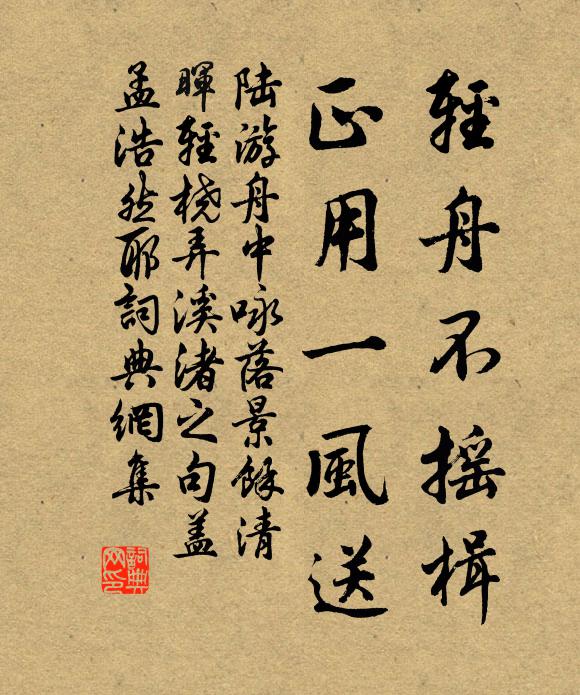 輕舟不摇楫
正用一風送
陸游舟中咏落景餘清
暉輕橈弄溪渚之句蓋
孟浩然耶詞典網集
詞典网印